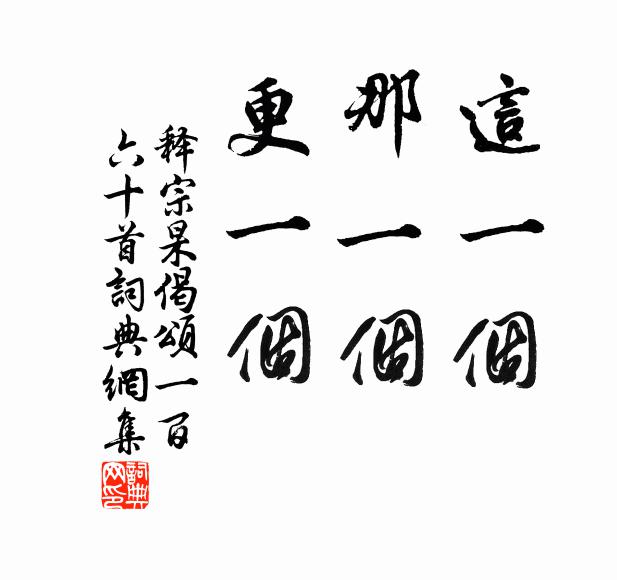 這一個
那一個
更一個
释宗杲偈頌一百
六十首詞典網集
詞典
网印